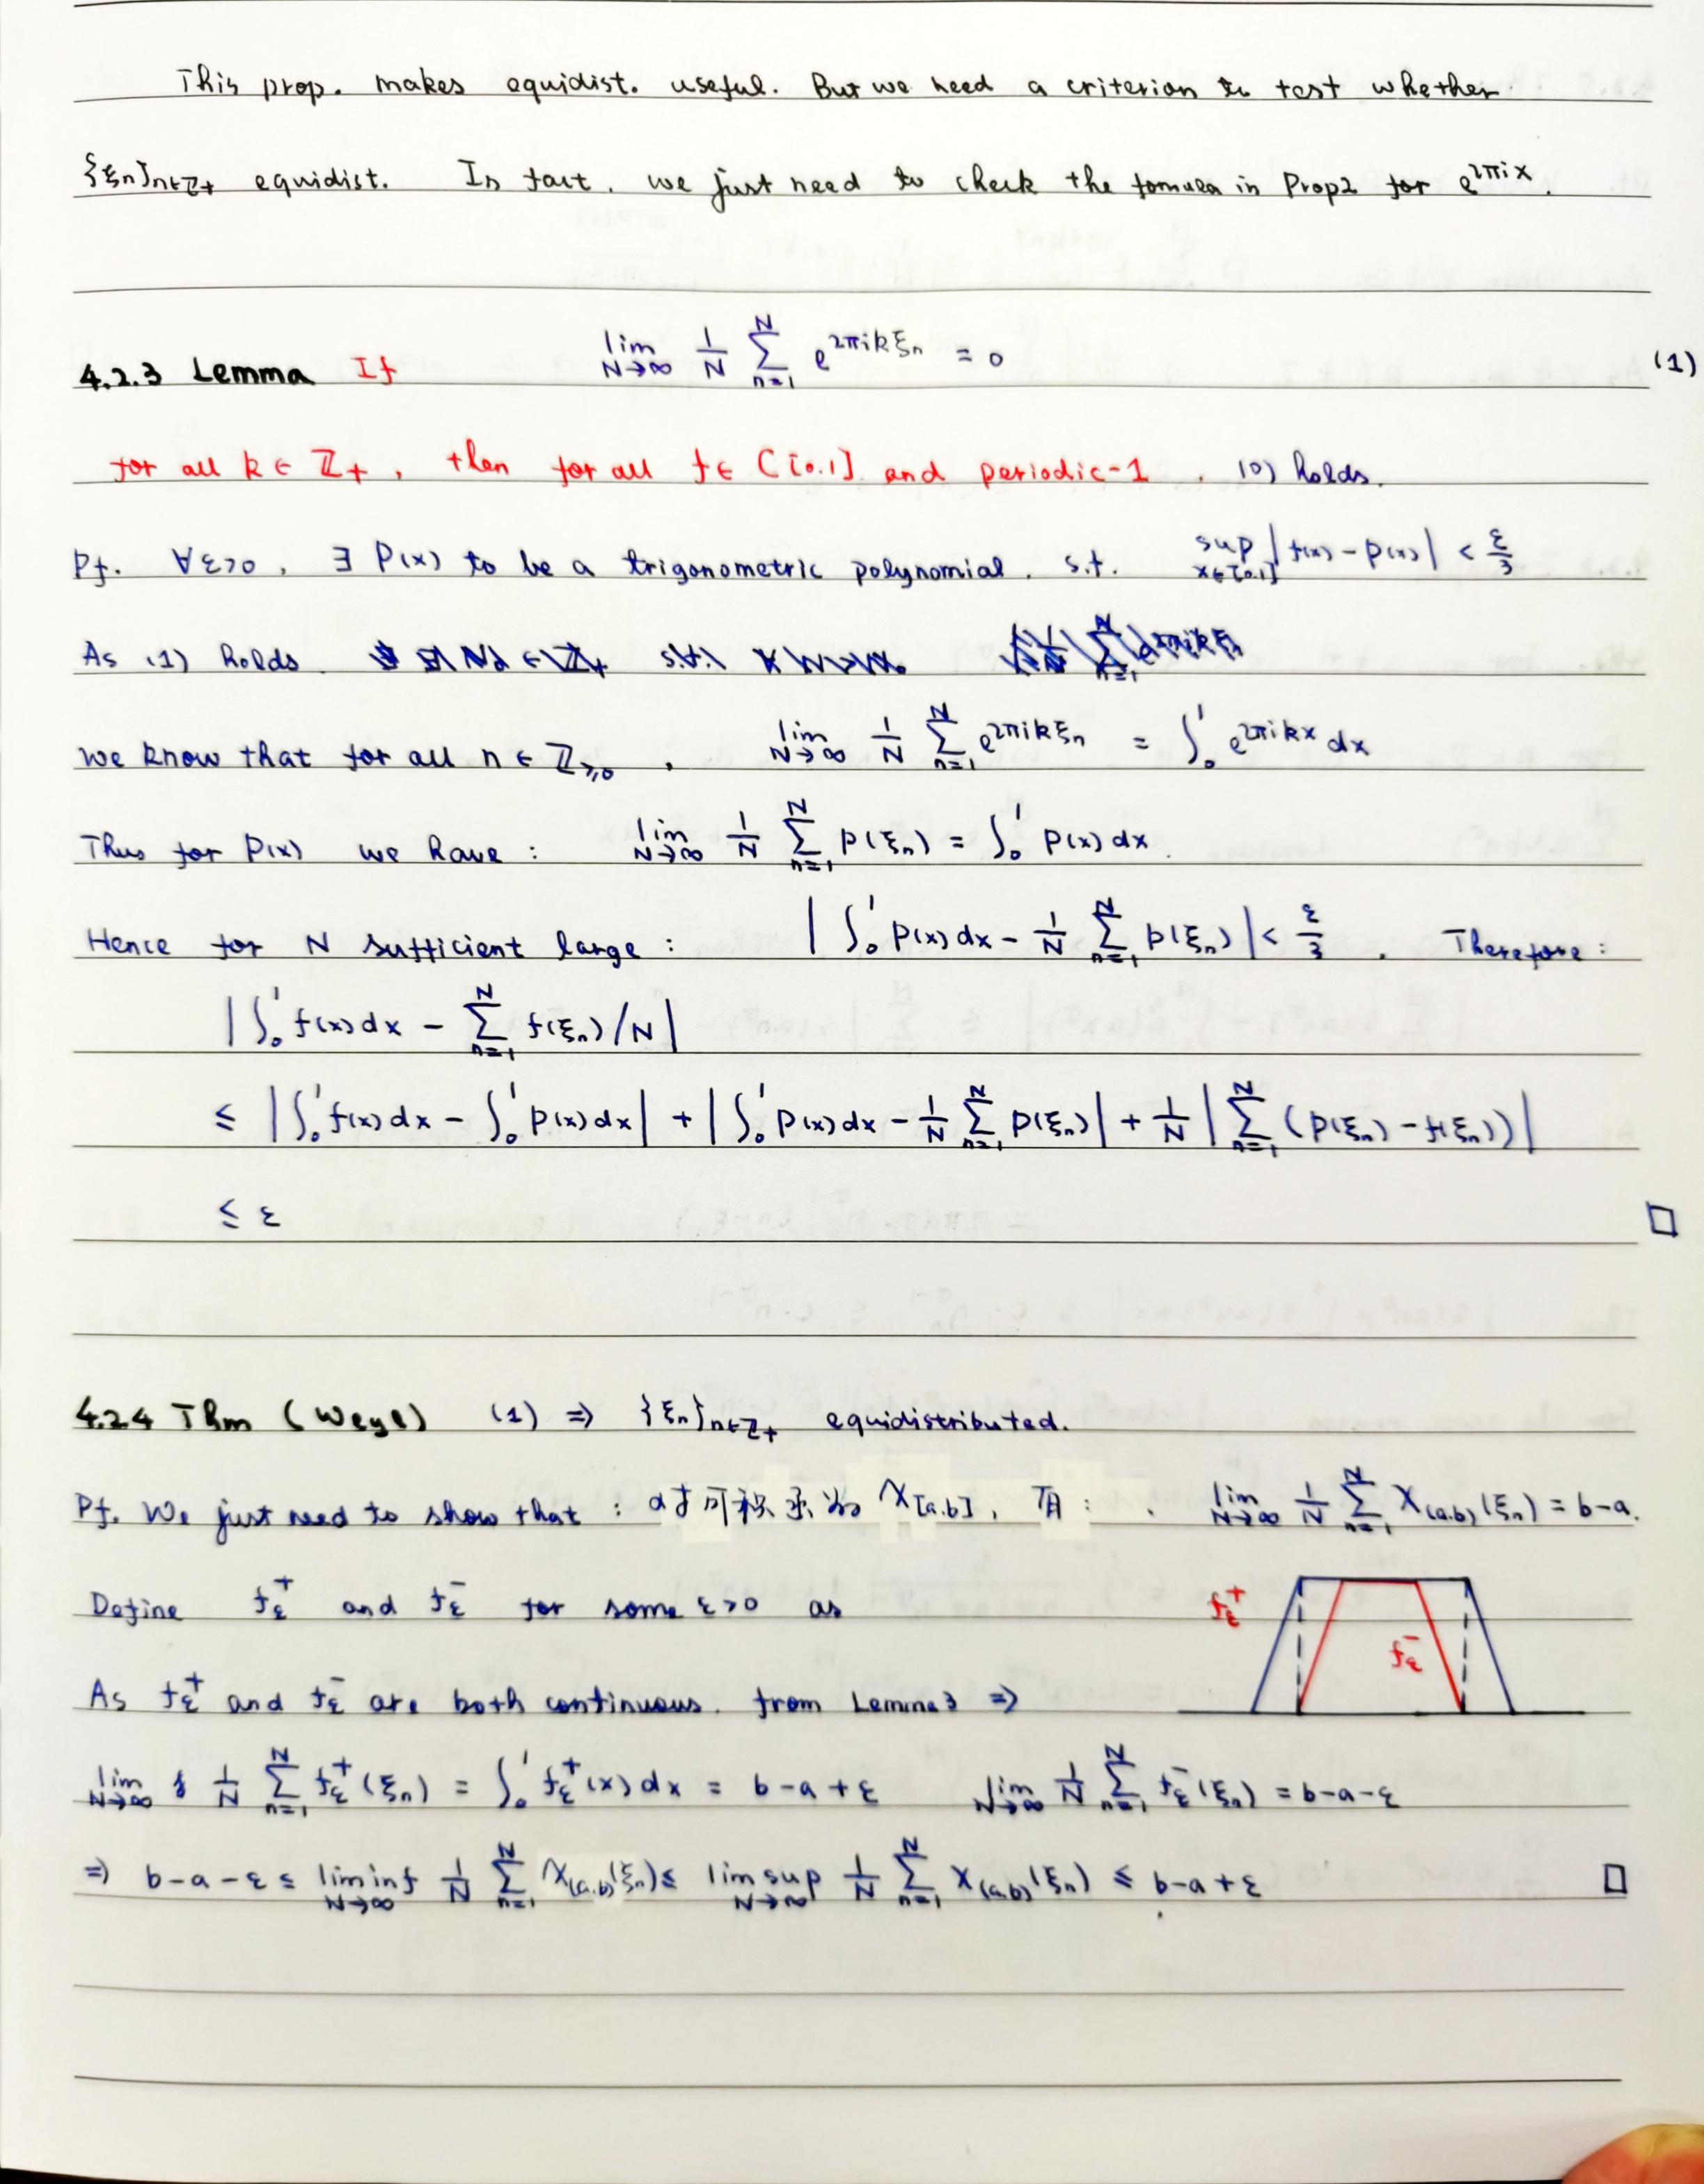 This prop. makes equidist. useful. But we need a criterion to test whether
{ξn}n∈Z+ equidist. In fact, we just need to check the formula in Prop2 for e^{2πix}.
4.2.3 Lemma If lim_{N→∞} 1/N Σ_{n=1}^{N} e^{2πikξn} = 0 (1)
for all k ∈ Z+, then for all f ∈ C[0.1] and periodic-1, (0) holds.
Pf. ∀ε>0, ∃ P(x) to be a trigonometric polynomial. s.t. sup_{x∈[0.1]} |f(x) - p(x)| < ε/3
As (1) holds.
we know that for all n ∈ Z≥0, lim_{N→∞} 1/N Σ_{n=1}^{N} e^{2πikξn} = ∫_0^1 e^{2πikx} dx
Thus for P(x) we have: lim_{N→∞} 1/N Σ_{n=1}^{N} p(ξn) = ∫_0^1 p(x) dx.
Hence for N sufficient large: |∫_0^1 p(x) dx - 1/N Σ_{n=1}^{N} p(ξn)| < ε/3. Therefore:
|∫_0^1 f(x) dx - Σ_{n=1}^{N} f(ξn)/N|
≤ |∫_0^1 f(x) dx - ∫_0^1 p(x) dx| + |∫_0^1 p(x) dx - 1/N Σ_{n=1}^{N} p(ξn)| + 1/N |Σ_{n=1}^{N} (p(ξn) - f(ξn))|
≤ ε □
4.2.4 Thm (Weyl) (1) ⇒ {ξn}n∈Z+ equidistributed.
Pf. We just need to show that: 对可积函数 χ[a.b], 有: lim_{N→∞} 1/N Σ_{n=1}^{N} χ(a.b)(ξn) = b-a.
Define fε+ and fε- for some ε>0 as
fε+ fε-
As fε+ and fε- are both continuous. from Lemma 3 ⇒
lim_{N→∞} 1/N Σ_{n=1}^{N} fε+(ξn) = ∫_0^1 fε+(x) dx = b-a+ε lim_{N→∞} 1/N Σ_{n=1}^{N} fε-(ξn) = b-a-ε
⇒ b-a-ε ≤ liminf_{N→∞} 1/N Σ_{n=1}^{N} χ(a.b)(ξn) ≤ limsup_{N→∞} 1/N Σ_{n=1}^{N} χ(a.b)(ξn) ≤ b-a+ε □